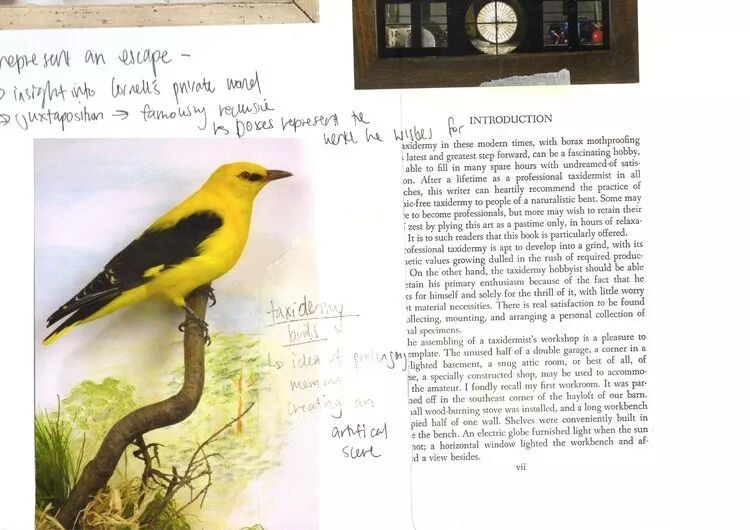 represent an escape –
→ insight into Cornell's private world
→ juxtaposition → famously reclusive
↳ boxes represent the
world he wishes for
taxidermy
birds
↳ idea of prolonging
memory
creating an
artificial
scene
INTRODUCTION
axidermy in these modern times, with borax mothproofing
latest and greatest step forward, can be a fascinating hobby,
able to fill in many spare hours with undreamed-of satis-
on. After a lifetime as a professional taxidermist in all
ches, this writer can heartily recommend the practice of
ic-free taxidermy to people of a naturalistic bent. Some may
e to become professionals, but more may wish to retain their
zest by plying this art as a pastime only, in hours of relaxa-
It is to such readers that this book is particularly offered.
ofessional taxidermy is apt to develop into a grind, with its
hetic values growing dulled in the rush of required produc-
On the other hand, the taxidermy hobbyist should be able
etain his primary enthusiasm because of the fact that he
ks for himself and solely for the thrill of it, with little worry
t material necessities. There is real satisfaction to be found
ollecting, mounting, and arranging a personal collection of
al specimens.
he assembling of a taxidermist's workshop is a pleasure to
emplate. The unused half of a double garage, a corner in a
lighted basement, a snug attic room, or best of all, of
se, a specially constructed shop, may be used to accommo-
the amateur. I fondly recall my first workroom. It was par-
ned off in the southeast corner of the hayloft of our barn.
all wood-burning stove was installed, and a long workbench
pied half of one wall. Shelves were conveniently built in
e the bench. An electric globe furnished light when the sun
not; a horizontal window lighted the workbench and af-
d a view besides.
vii